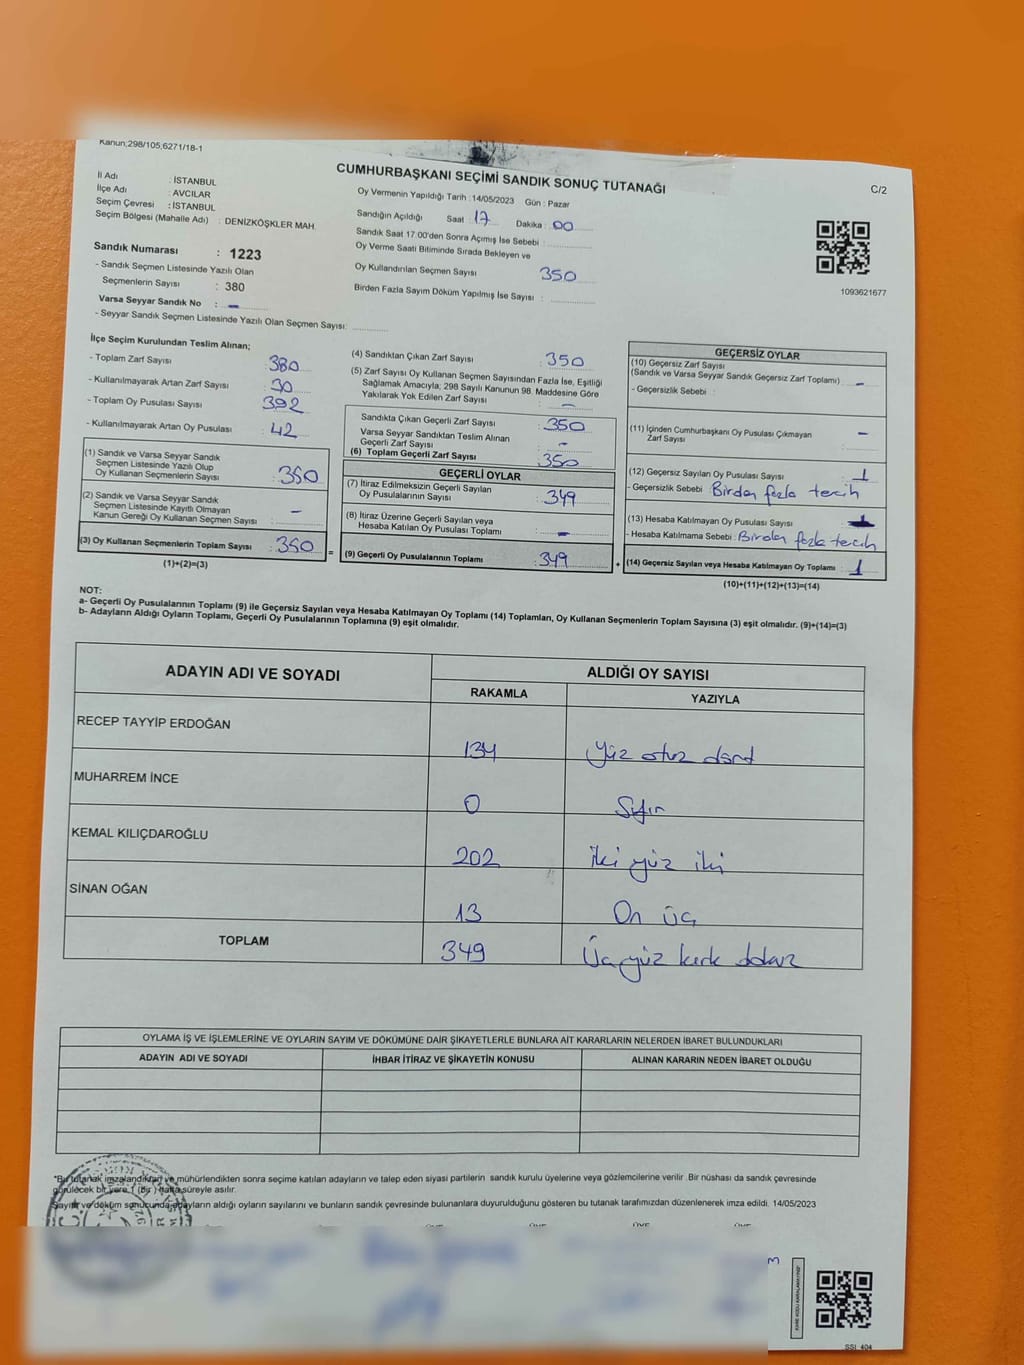 Kanun;298/105,6271/18-1
CUMHURBAŞKANI SEÇİMİ SANDIK SONUÇ TUTANAĞI
C/2
İl Adı : İSTANBUL
İlçe Adı : AVCILAR
Seçim Çevresi : İSTANBUL
Seçim Bölgesi (Mahalle Adı) : DENİZKÖŞKLER MAH.
Sandık Numarası : 1223
- Sandık Seçmen Listesinde Yazılı Olan
Seçmenlerin Sayısı : 380
Varsa Seyyar Sandık No : -
- Seyyar Sandık Seçmen Listesinde Yazılı Olan Seçmen Sayısı:
Oy Vermenin Yapıldığı Tarih : 14/05/2023 Gün : Pazar
Sandığın Açıldığı Saat : 17 Dakika : 00
Sandık Saat 17:00'den Sonra Açımış İse Sebebi :
Oy Verme Saati Bitiminde Sırada Bekleyen ve
Oy Kullandırılan Seçmen Sayısı 350
Birden Fazla Sayım Döküm Yapılmış İse Sayısı :
1093621677
İlçe Seçim Kurulundan Teslim Alınan;
- Toplam Zarf Sayısı : 380
- Kullanılmayarak Artan Zarf Sayısı : 30
- Toplam Oy Pusulası Sayısı : 392
- Kullanılmayarak Artan Oy Pusulası : 42
(1) Sandık ve Varsa Seyyar Sandık
Seçmen Listesinde Yazılı Olup
Oy Kullanan Seçmenlerin Sayısı : 350
(2) Sandık ve Varsa Seyyar Sandık
Seçmen Listesinde Kayıtlı Olmayan
Kanun Gereği Oy Kullanan Seçmen Sayısı : -
(3) Oy Kullanan Seçmenlerin Toplam Sayısı : 350
(1)+(2)=(3)
=
(4) Sandıktan Çıkan Zarf Sayısı : 350
(5) Zarf Sayısı Oy Kullanan Seçmen Sayısından Fazla İse, Eşitliği
Sağlamak Amacıyla; 298 Sayılı Kanunun 98. Maddesine Göre
Yakılarak Yok Edilen Zarf Sayısı : -
Sandıkta Çıkan Geçerli Zarf Sayısı : 350
Varsa Seyyar Sandıktan Teslim Alınan
Geçerli Zarf Sayısı : -
(6) Toplam Geçerli Zarf Sayısı : 350
GEÇERLİ OYLAR
(7) İtiraz Edilmeksizin Geçerli Sayılan
Oy Pusulalarının Sayısı : 349
(8) İtiraz Üzerine Geçerli Sayılan veya
Hesaba Katılan Oy Pusulası Toplamı : -
(9) Geçerli Oy Pusulalarının Toplamı : 349
+
GEÇERSİZ OYLAR
(10) Geçersiz Zarf Sayısı
(Sandık ve Varsa Seyyar Sandık Geçersiz Zarf Toplamı) : -
- Geçersizlik Sebebi :
(11) İçinden Cumhurbaşkanı Oy Pusulası Çıkmayan
Zarf Sayısı : -
(12) Geçersiz Sayılan Oy Pusulası Sayısı : 1
- Geçersizlik Sebebi : Birden fazla tercih
(13) Hesaba Katılmayan Oy Pusulası Sayısı :
- Hesaba Katılmama Sebebi : Birden fazla tercih
(14) Geçersiz Sayılan veya Hesaba Katılmayan Oy Toplamı : 1
(10)+(11)+(12)+(13)=(14)
NOT:
a- Geçerli Oy Pusulalarının Toplamı (9) ile Geçersiz Sayılan veya Hesaba Katılmayan Oy Toplamı (14) Toplamları, Oy Kullanan Seçmenlerin Toplam Sayısına (3) eşit olmalıdır. (9)+(14)=(3)
b- Adayların Aldığı Oyların Toplamı, Geçerli Oy Pusulalarının Toplamına (9) eşit olmalıdır.
ADAYIN ADI VE SOYADI
ALDIĞI OY SAYISI
RAKAMLA YAZIYLA
RECEP TAYYİP ERDOĞAN 134 Yüz otuz dört
MUHARREM İNCE 0 Sıfır
KEMAL KILIÇDAROĞLU 202 İki yüz iki
SİNAN OĞAN 13 On üç
TOPLAM 349 Üç yüz kırk dokuz
OYLAMA İŞ VE İŞLEMLERİNE VE OYLARIN SAYIM VE DÖKÜMÜNE DAİR ŞİKAYETLERLE BUNLARA AİT KARARLARIN NELERDEN İBARET BULUNDUKLARI
ADAYIN ADI VE SOYADI İHBAR İTİRAZ VE ŞİKAYETİN KONUSU ALINAN KARARIN NEDEN İBARET OLDUĞU
*Bu tutanak imzalandıktan ve mühürlendikten sonra seçime katılan adayların ve talep eden siyasi partilerin sandık kurulu üyelerine veya gözlemcilerine verilir. Bir nüshası da sandık çevresinde
görülecek bir yere 1 (Bir) hafta süreyle asılır.
Sayım ve döküm sonucunda adayların aldığı oyların sayılarını ve bunların sandık çevresinde bulunanlara duyurulduğunu gösteren bu tutanak tarafımızdan düzenlenerek imza edildi. 14/05/2023
SSI_404